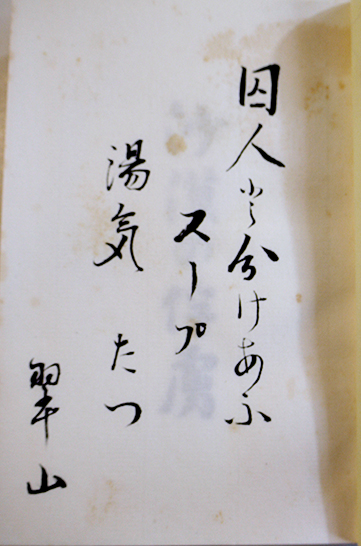 囚人と分けあふ
スープ
湯気たつ
翠山